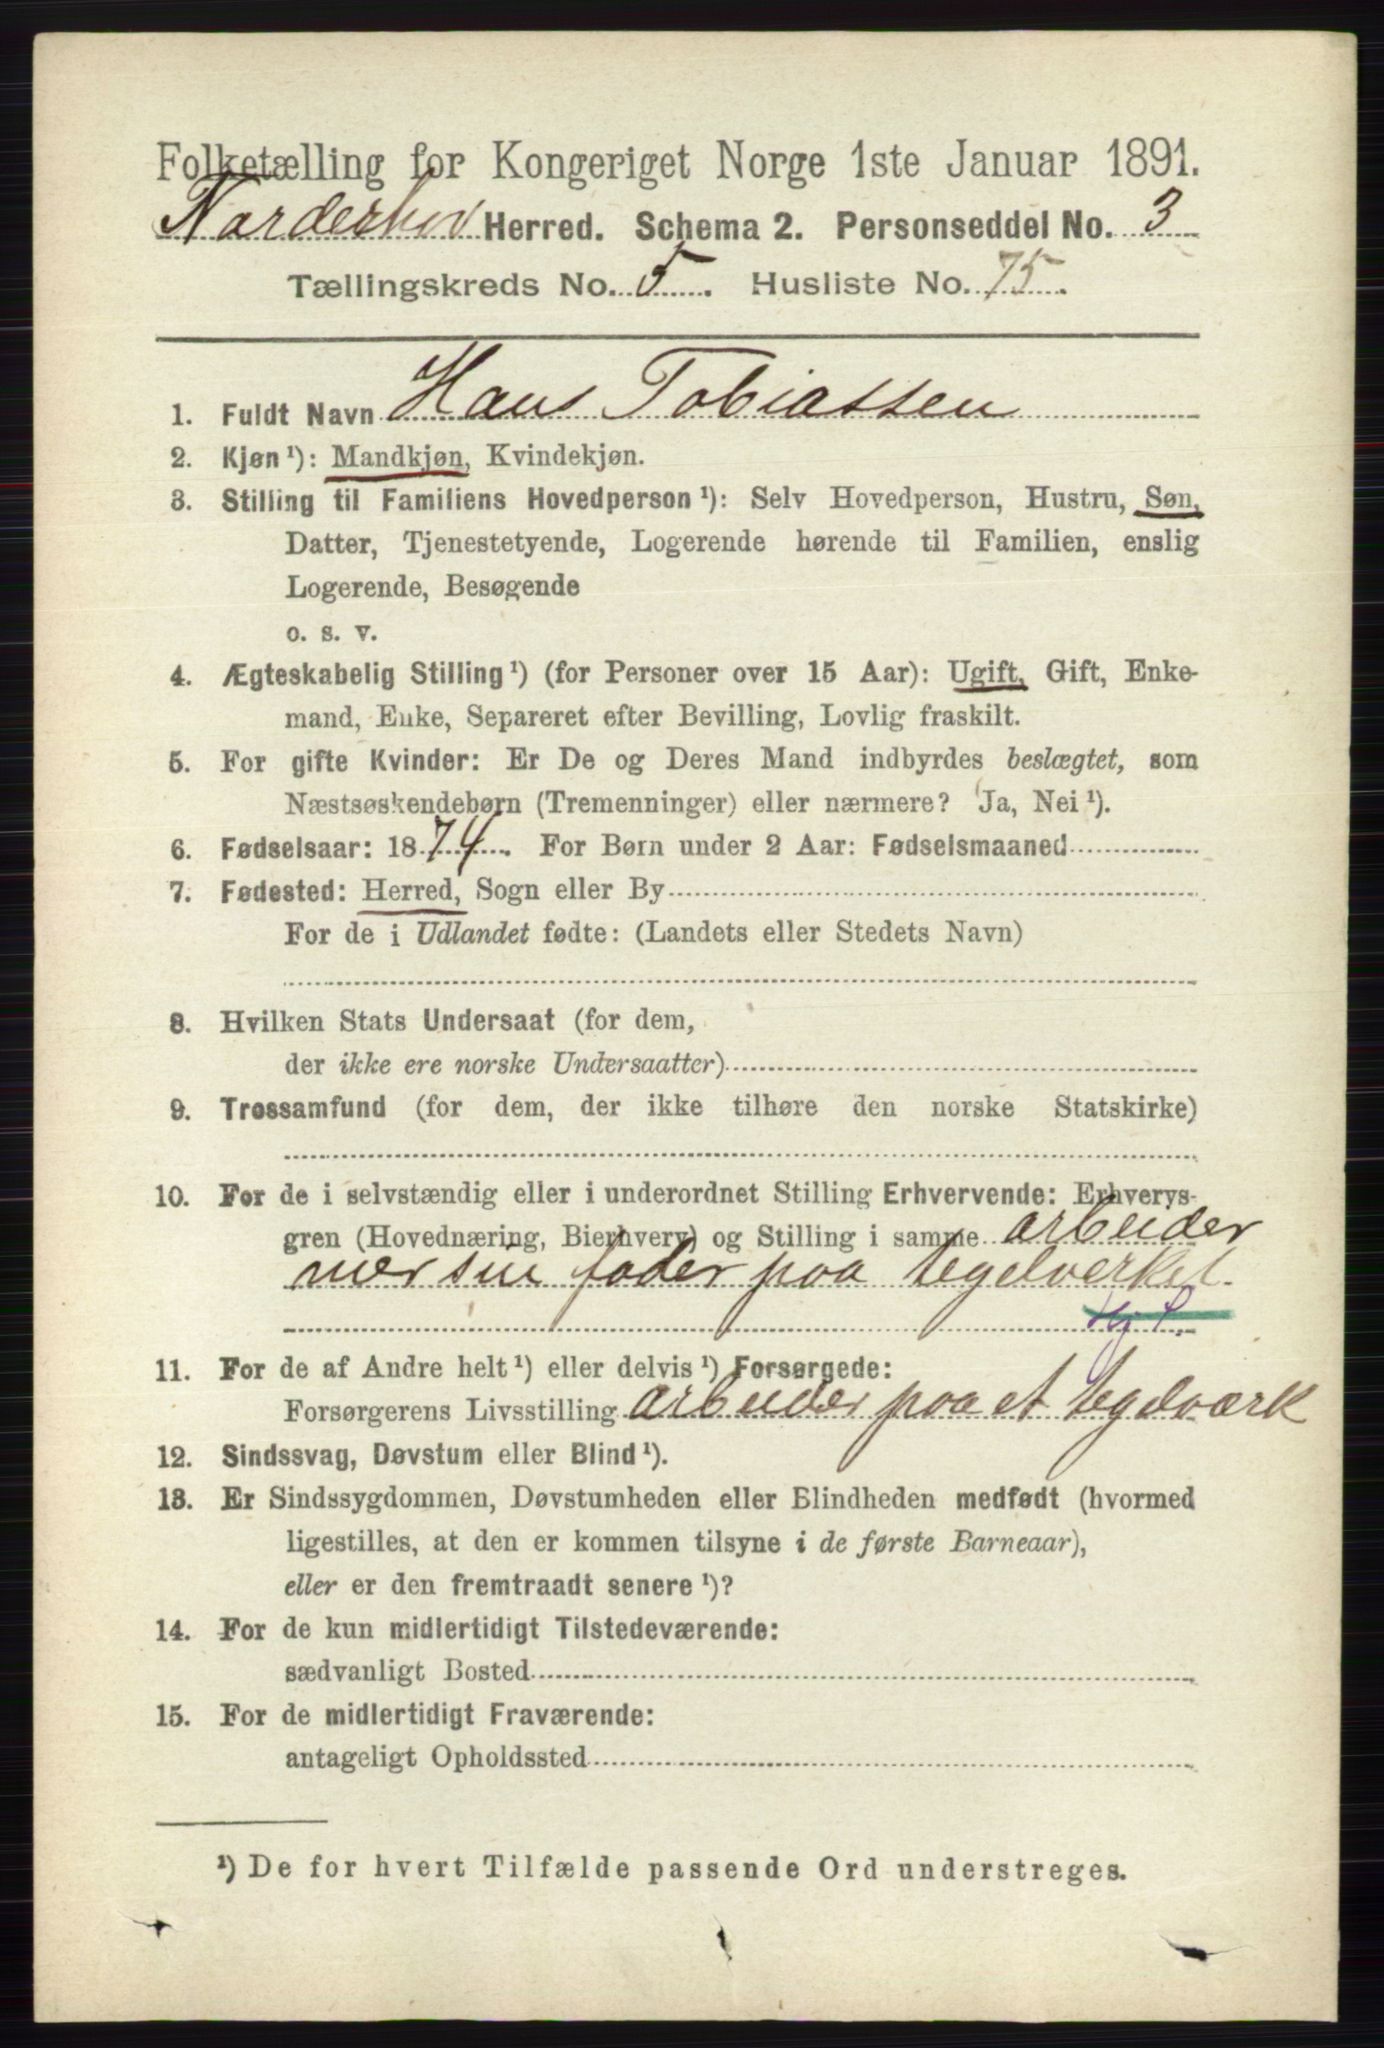 Folketælling for Kongeriget Norge 1ste Januar 1891.
Norderhov Herred. Schema 2. Personseddel No. 3
Tællingskreds No. 5. Husliste No. 75.
1. Fuldt Navn Hans Tobiassen
2. Kjøn¹): Mandkjøn, Kvindekjøn.
3. Stilling til Familiens Hovedperson¹): Selv Hovedperson, Hustru, Søn,
Datter, Tjenestetyende, Logerende hørende til Familien, enslig
Logerende, Besøgende
o. s. v.
4. Ægteskabelig Stilling¹) (for Personer over 15 Aar): Ugift, Gift, Enke-
mand, Enke, Separeret efter Bevilling, Lovlig fraskilt.
5. For gifte Kvinder: Er De og Deres Mand indbyrdes beslægtet, som
Næstsøskendebørn (Tremenninger) eller nærmere? Ja, Nei¹).
6. Fødselsaar: 1874. For Børn under 2 Aar: Fødselsmaaned
7. Fødested: Herred, Sogn eller By
For de i Udlandet fødte: (Landets eller Stedets Navn)
8. Hvilken Stats Undersaat (for dem,
der ikke ere norske Undersaatter)
9. Trossamfund (for dem, der ikke tilhøre den norske Statskirke)
10. For de i selvstændig eller i underordnet Stilling Erhvervende: Erhvervs-
gren (Hovednæring, Bierhverv) og Stilling i samme arbeider
mer sin fader paa tegelverket.
11. For de af Andre helt¹) eller delvis¹) Forsørgede:
Forsørgerens Livsstilling arbeider paa et tegelværk
12. Sindssvag, Døvstum eller Blind¹).
13. Er Sindssygdommen, Døvstumheden eller Blindheden medfødt (hvormed
ligestilles, at den er kommen tilsyne i de første Barneaar),
eller er den fremtraadt senere¹)?
14. For de kun midlertidigt Tilstedeværende:
sædvanligt Bosted
15. For de midlertidigt Fraværende:
antageligt Opholdssted
¹) De for hvert Tilfælde passende Ord understreges.